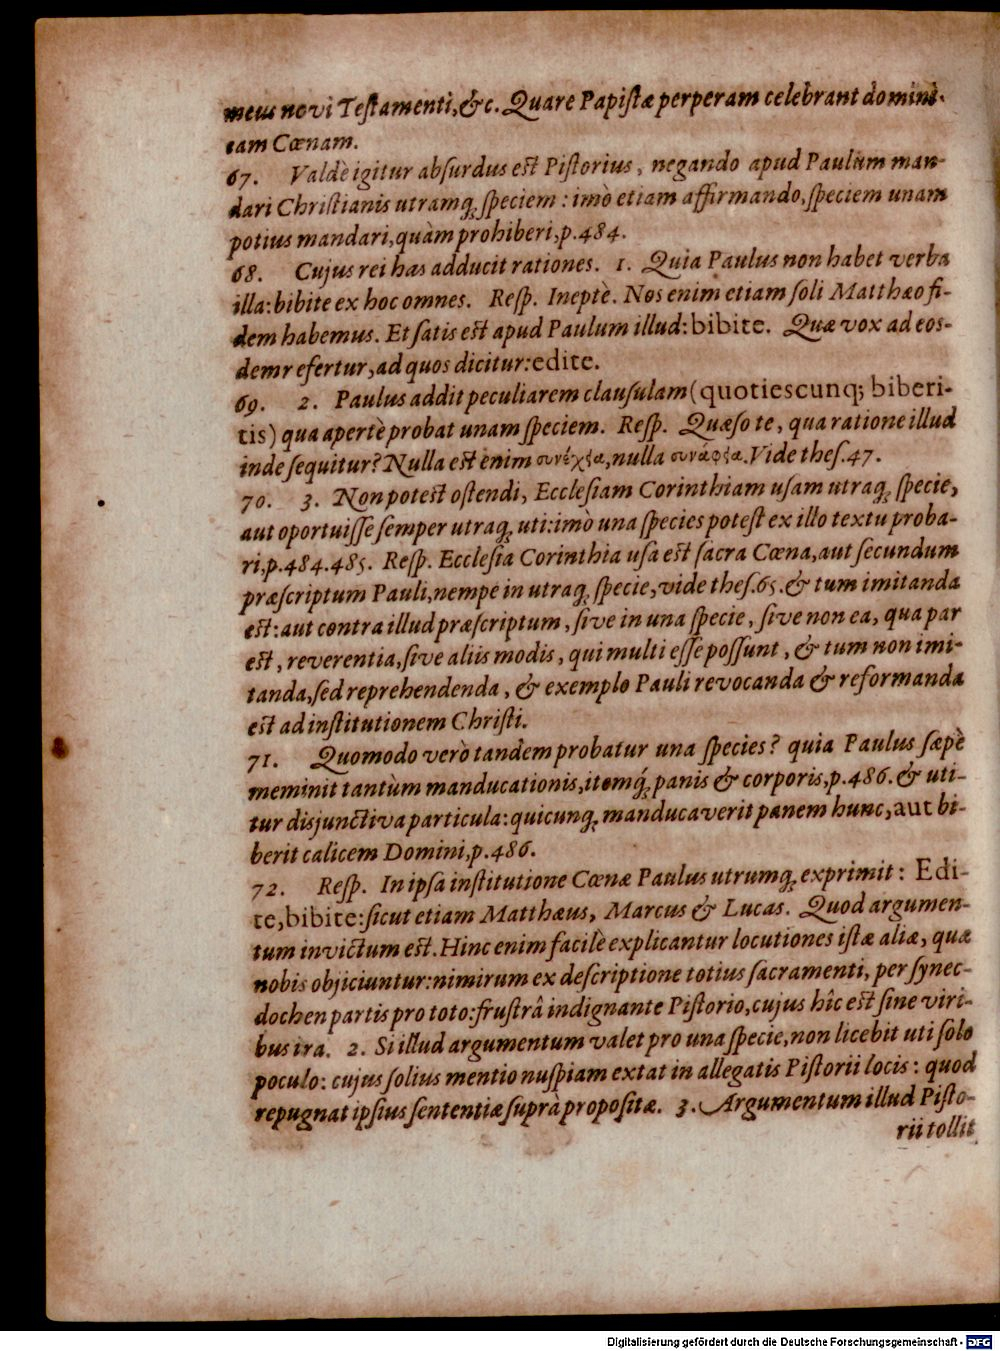 meus novi Testamenti,&c. Quare Papistæ perperam celebrant domini-
cam Cœnam.
67. Valdè igitur absurdus est Pistorius, negando apud Paulum man-
dari Christianis utramq; speciem: imò etiam affirmando, speciem unam
potius mandari, quàm prohiberi, p.484.
68. Cujus rei has adducit rationes. 1. Quia Paulus non habet verba
illa: bibite ex hoc omnes. Resp. Ineptè. Nos enim etiam soli Matthæo fi-
dem habemus. Et satis est apud Paulum illud: bibite. Quæ vox ad eos-
dem refertur, ad quos dicitur: edite.
69. 2. Paulus addit peculiarem clausulam (quotiescunq; biberi-
tis) qua apertè probat unam speciem. Resp. Quæso te, qua ratione illud
inde sequitur? Nulla est enim συνέχεια, nulla συνάφεια. Vide thes.47.
70. 3. Non potest ostendi, Ecclesiam Corinthiam usam utraq; specie,
aut oportuisse semper utraq; uti: imò una species potest ex illo textu proba-
ri, p.484.485. Resp. Ecclesia Corinthia usa est sacra Cœna, aut secundum
præscriptum Pauli, nempe in utraq; specie, vide thes.65. & tum imitanda
est: aut contra illud præscriptum, sive in una specie, sive non ea, qua par
est, reverentia, sive aliis modis, qui multi esse possunt, & tum non imi-
tanda, sed reprehendenda, & exemplo Pauli revocanda & reformanda
est ad institutionem Christi.
71. Quomodo verò tandem probatur una species? quia Paulus sæpè
meminit tantùm manducationis, itemq́; panis & corporis, p.486. & uti-
tur disjunctiva particula: quicunq; manducaverit panem hunc, aut bi-
berit calicem Domini, p.486.
72. Resp. In ipsa institutione Cœnæ Paulus utrumq; exprimit: Edi-
te, bibite: sicut etiam Matthæus, Marcus & Lucas. Quod argumen-
tum invictum est. Hinc enim facilè explicantur locutiones istæ aliæ, quæ
nobis objiciuntur: nimirum ex descriptione totius sacramenti, per synec-
dochen partis pro toto: frustrâ indignante Pistorio, cujus hîc est sine viri-
bus ira. 2. Si illud argumentum valet pro una specie, non licebit uti solo
poculo: cujus solius mentio nuspiam extat in allegatis Pistorii locis: quod
repugnat ipsius sententiæ suprà propositæ. 3. Argumentum illud Pisto-
rii tollit
Digitalisierung gefördert durch die Deutsche Forschungsgemeinschaft - DFG